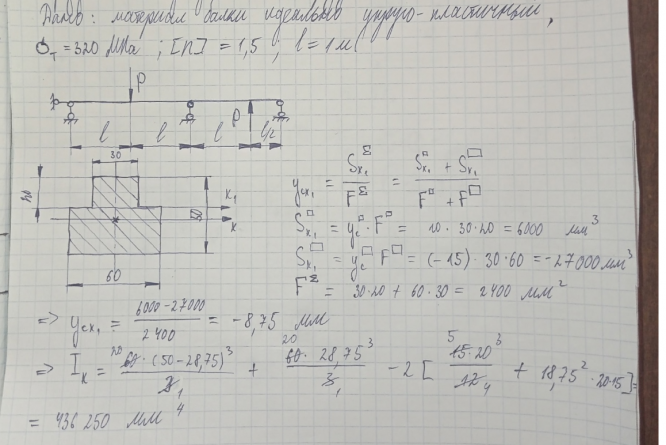 Дано: материал балки идеально упруго-пластичный,
σт = 320 МПа ; [n] = 1,5 ; l = 1 м
P
P
l l l l/2
30
20
x₁
x
60
y_cx₁ = S_x₁^Σ / F^Σ = (S_x₁^□ + S_x₁^▭) / (F^□ + F^▭)
S_x₁^□ = y_c^□ · F^□ = 10 · 30 · 20 = 6000 мм³
S_x₁^▭ = y_c^▭ F^▭ = (-15) · 30 · 60 = -27000 мм³
F^Σ = 30·20 + 60·30 = 2400 мм²
=> y_cx₁ = (6000 - 27000) / 2400 = -8,75 мм
=> I_x = 20 60 · (50 - 28,75)³ / 3 1 + 20 60 · 28,75³ / 3 1 - 2 [ 5 15 · 20³ / 12 4 + 18,75² · 20·15 ] =
= 436 250 мм⁴